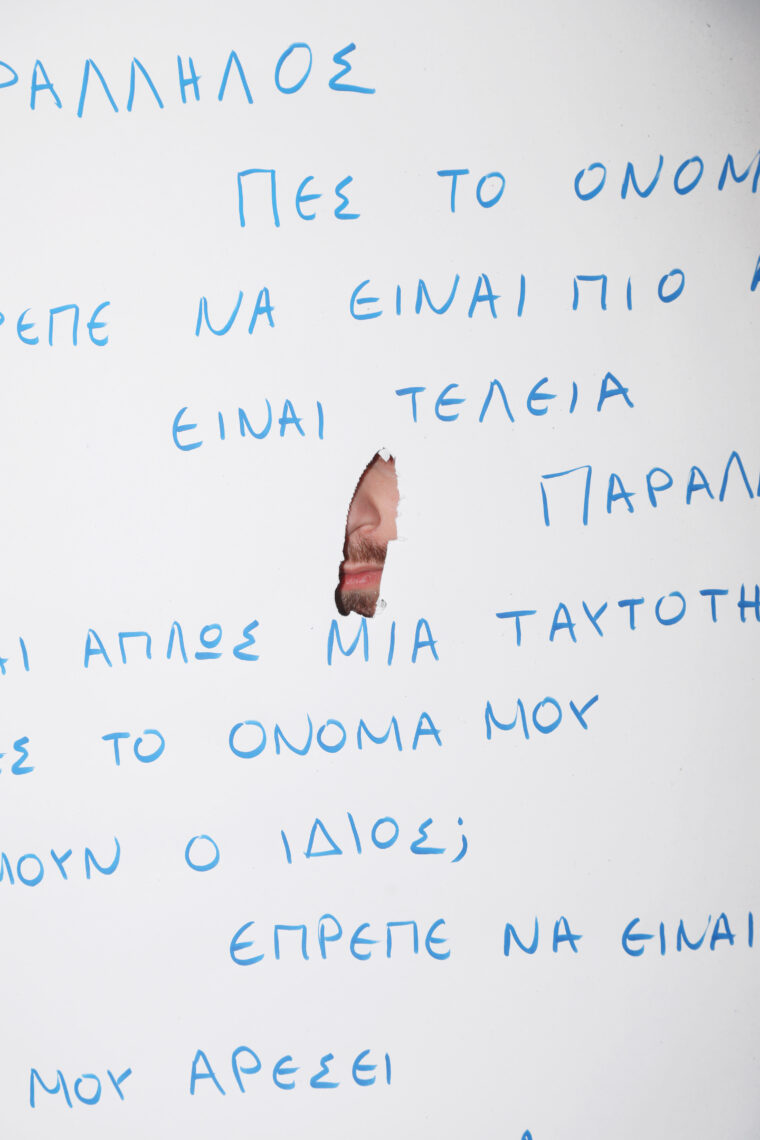 ΡΑΛΛΗΛΟΣ
ΠΕΣ ΤΟ ΟΝΟΜ
ΡΕΠΕ ΝΑ ΕΙΝΑΙ ΠΙΟ
ΕΙΝΑΙ ΤΕΛΕΙΑ
ΠΑΡΑΛΛ
ΑΙ ΑΠΛΩΣ ΜΙΑ ΤΑΥΤΟΤΗ
ΕΣ ΤΟ ΟΝΟΜΑ ΜΟΥ
ΜΟΥΝ Ο ΙΔΙΟΣ;
ΕΠΡΕΠΕ ΝΑ ΕΙΝΑΙ
ΜΟΥ ΑΡΕΣΕΙ